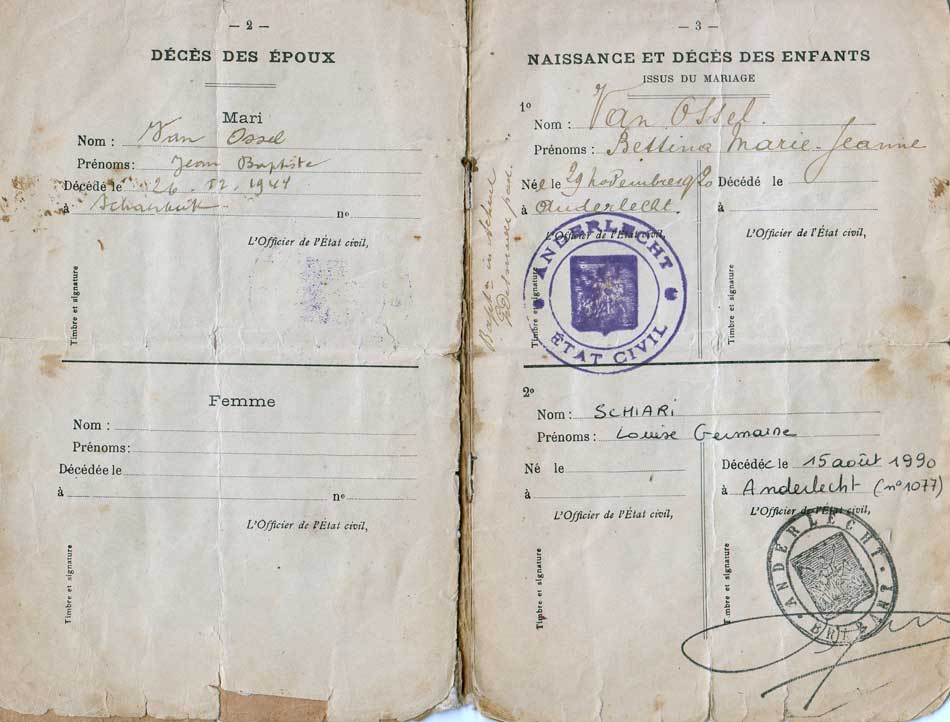 — 2 —
DÉCÈS DES ÉPOUX
Mari
Nom : Van Ossel
Prénoms: Jean Baptiste
Décédé le 26 . 12 . 1944
à Schaerbeek nº
L'Officier de l'État civil,
Timbre et signature
Femme
Nom :
Prénoms:
Décédée le
à nº
L'Officier de l'État civil,
Timbre et signature
— 3 —
NAISSANCE ET DÉCÈS DES ENFANTS
ISSUS DU MARIAGE
1º
Nom : Van Ossel.
Prénoms : Bettina Marie-Jeanne
Née le 29 novembre 1920 Décédé le
à Anderlecht. à
L'Officier de l'État civil, L'Officier de l'État civil,
Timbre et signature Timbre et signature
ANDERLECHT
ÉTAT CIVIL
2º
Nom : SCHIARI
Prénoms : Louise Germaine
Né le Décédée le 15 août 1990
à à Anderlecht (nº1077)
L'Officier de l'État civil, L'Officier de l'État civil,
Timbre et signature Timbre et signature
ANDERLECHT